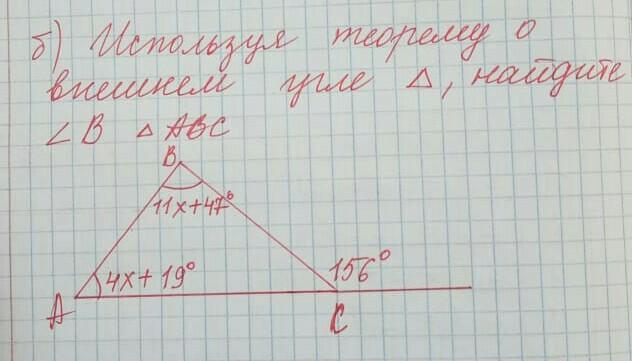 б) Используя теорему о
внешнем угле △, найдите
∠B △ ABC
B
11x+47°
4x+19°
156°
A
C